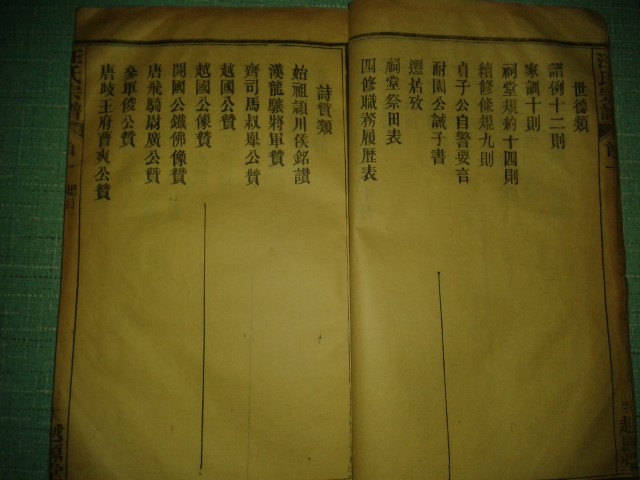 世德類
譜例十二則
家訓十則
祠堂規約十四則
續修條規九則
貞子公自警要言
耐園公誡子書
遷居攷
祠堂祭田表
四修職務履歷表
詩贊類
始祖潁川侯銘讚
漢龍驤將軍贊
齊司馬叔舉公贊
越國公贊
越國公像贊
開國公鐵佛像贊
唐飛騎尉廣公贊
參軍俊公贊
唐歧王府曹爽公贊
汪氏宗譜